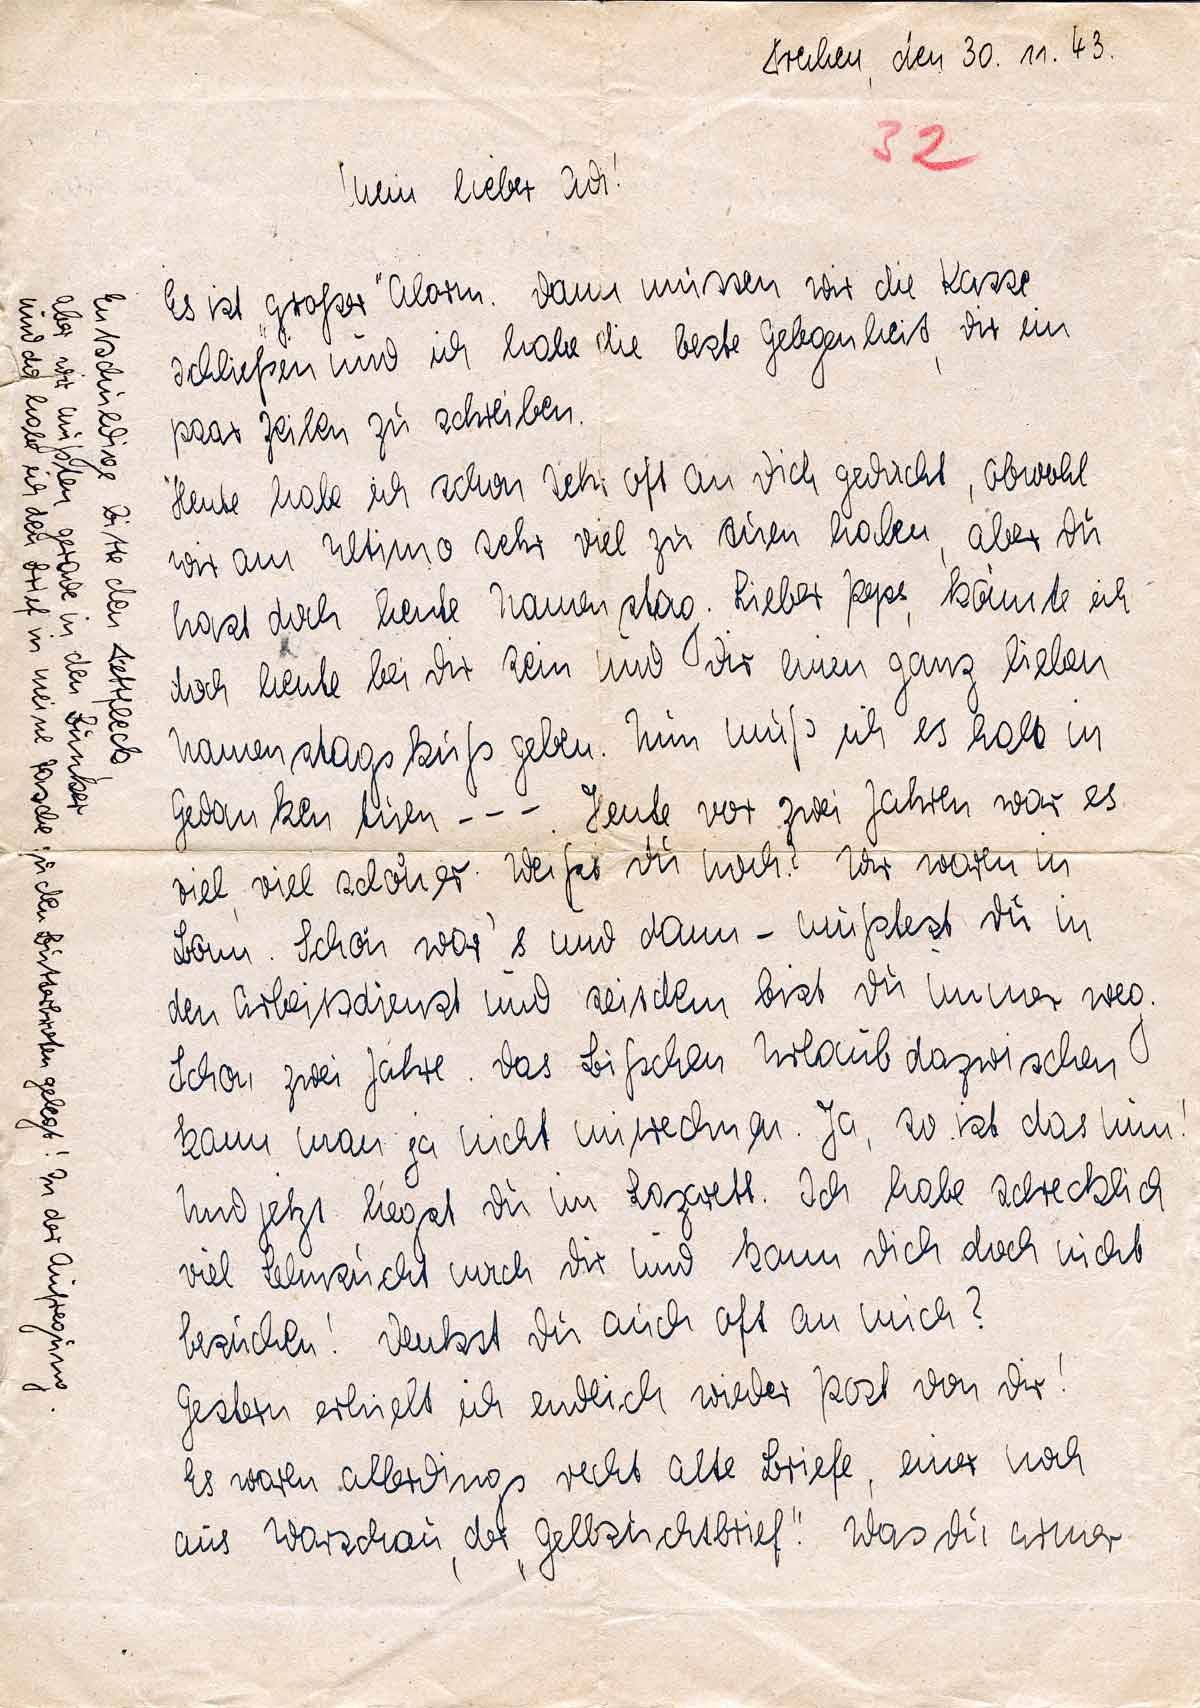 Frechen, den 30. 11. 43.
32
Mein lieber Adi!
Es ist "großer" Alarm. Dann müssen wir die Kasse
schließen und ich habe die beste Gelegenheit, Dir ein
paar Zeilen zu schreiben.
Heute habe ich schon sehr oft an Dich gedacht, obwohl
wir am Ultimo sehr viel zu tuen haben, aber Du
hast doch heute Namenstag. Lieber Peps, könnte ich
doch heute bei Dir sein und Dir einen ganz lieben
Namenstagskuß geben. Nun muß ich es halt in
Gedanken tuen - - - . Heute vor zwei Jahren war es
viel, viel schöner. Weißt Du noch? Wir waren in
Bonn. Schön war's und dann - mußtest Du in
den Arbeitsdienst und seitdem bist Du immer weg.
Schon zwei Jahre. Das bißchen Urlaub dazwischen
kann man ja nicht mitrechnen. Ja, so ist das nun!
Und jetzt liegst Du im Lazarett. Ich habe schrecklich
viel Sehnsucht nach Dir und kann Dich doch nicht
besuchen! Denkst Du auch oft an mich?
Gestern erhielt ich endlich wieder Post von Dir!
Es waren allerdings recht alte Briefe, einer noch
aus Warschau, der „Gelbsuchtsbrief". Was Du armer
Entschuldige bitte den Fettfleck,
aber wir mußten gerade in den Bunker
und da habe ich den Brief in meine Tasche zu den Butterbroten gelegt! In der Aufregung.